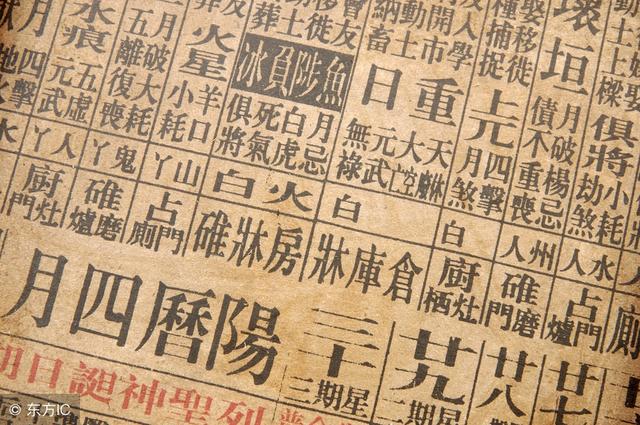 俱將
小耗
劫煞
水人
占門爐
廿七
壞垣
月破楊忌
債不重喪
州人
碓磨門
廿八
娶移徙
種捕捉
上元
四擊
月煞
白
廚灶栖
廿九
星期二
人學
開市
動土
納畜
重日
元武
無祿
白
倉庫牀
三十
星期三
魚陟負冰
月忌
白虎
死氣
俱將
火白
房牀碓
火星
羊口
小耗
山丫
占門廁
月破大耗
五離復喪
鬼丫
碓磨爐
水痕
五虛
元武
人丫
廚灶門
月
四擊
陽曆四月
列聖神誕日期
© 东方IC